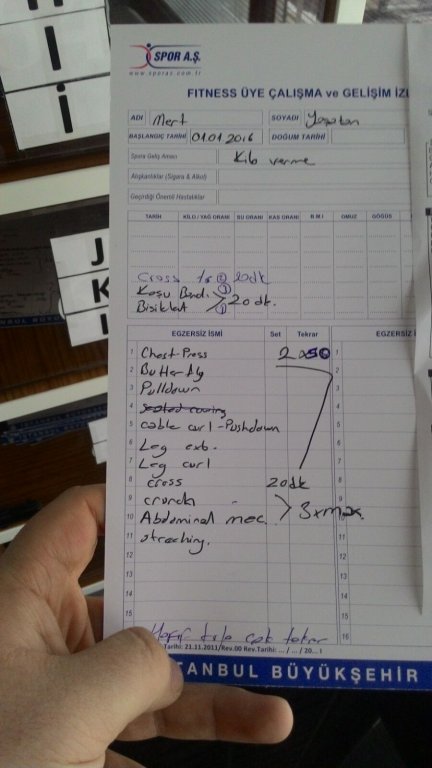 İ
İ
J
K
SPOR A.Ş.
www.sporas.com.tr
FITNESS ÜYE ÇALIŞMA ve GELİŞİM İZL
ADI Mert SOYADI
BAŞLANGIÇ TARİHİ 01.01.2016 DOĞUM TARİHİ
Spora Geliş Amacı Kilo verme
Alışkanlıklar (Sigara & Alkol)
Geçirdiği Önemli Hastalıklar
TARİH KİLO / YAĞ ORANI SU ORANI KAS ORANI B.M.I OMUZ GÖĞÜS
Cross 20dk
Koşu Band. 3
Bisiklet 1 20 dk.
EGZERSİZ İSMİ Set Tekrar EGZERSİZ İ
1 Chest-Press 2x50 1
2 Butterfly 2
3 Pulldown 3
4 seated rowing 4
5 cable curl-Pushdown 5
6 Leg ext. 6
7 Leg curl 7
8 cross 20dk 8
9 crunch 9
10 Abdominal mec. 3xmax 10
11 streching. 11
12 12
13 13
14 14
15 15
16
Hafif kilo çok tekrar
Tarihi: 21.11.2011/Rev.00 Rev.Tarihi: ... / ... / 20...
İSTANBUL BÜYÜKŞEHİR